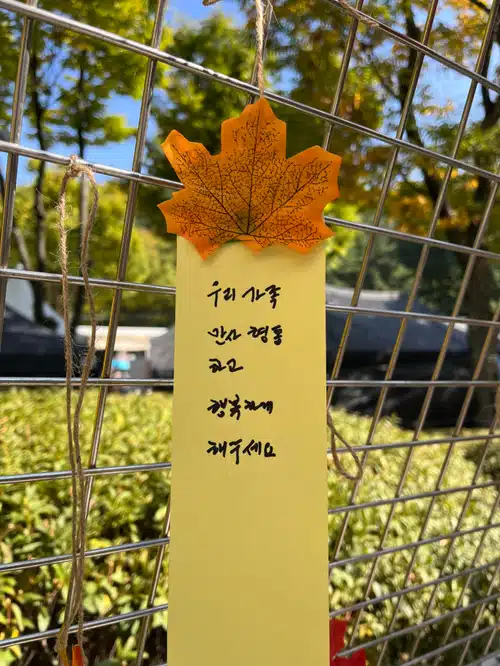 우리 가족
만사 형통
하고
행복하게
해주세요